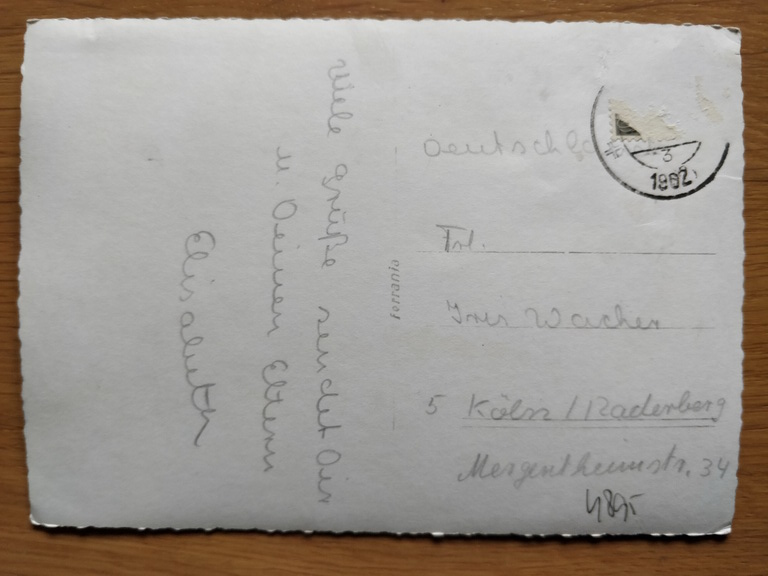 Viele Grüße sendet Dir
u. Deinen Eltern
Elisabeth
ferrania
Deutschland
3
1962
Frl.
Iris Wacher
5 Köln / Raderberg
Mergentheimstr. 34